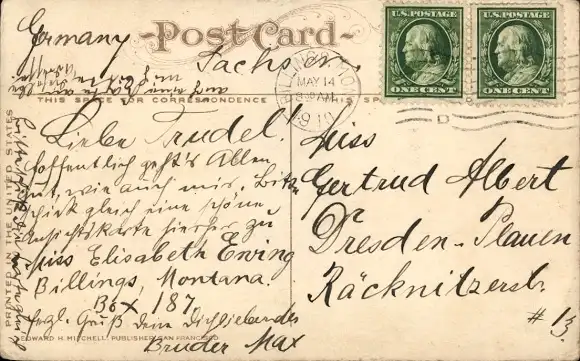 Germany
Post Card.
Sachsen.
U.S. POSTAGE
ONE CENT
U.S. POSTAGE
ONE CENT
BILLINGS, MONT.
MAY 14
8 30 AM
1910
THIS SPACE FOR CORRESPONDENCE
THIS SP
Liebe Trudel!
Hoffentlich geht's Allen
gut, wie auch mir. Bitte
schick gleich eine schöne
Ansichtskarte hierher zu
Miss Elisabeth Ewing
Billings, Montana.
Box 187
Herzl. Gruß dein dichliebender
Bruder Max
Miss
Gertrud Albert
Dresden-Plauen
Räcknitzerstr.
# 13.
PRINTED IN THE UNITED STATES
EDWARD H. MITCHELL, PUBLISHER, SAN FRANCISCO